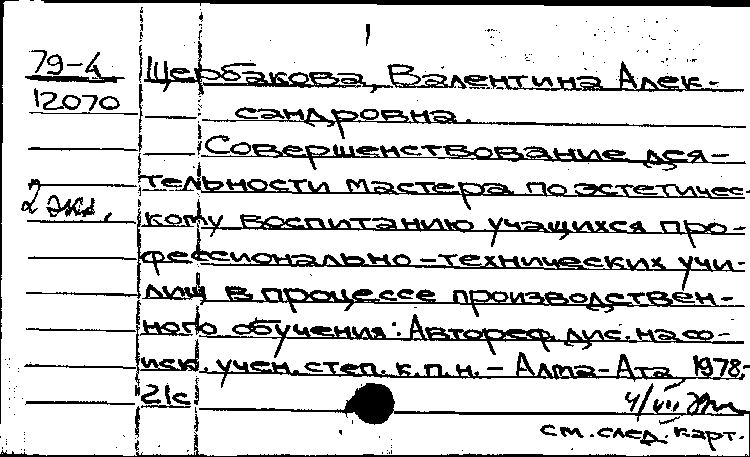 79-4 Щербакова, Валентина Алек-
12070 сандровна.
Совершенствование дея-
тельности мастера по эстетичес-
2 экз. кому воспитанию учащихся про-
фессионально-технических учи-
лищ в процессе производствен-
ного обучения: Автореф. дис. на со-
иск. учен. степ. к.п.н. - Алма-Ата 1978,-
21с 4/VII
см. след. карт.